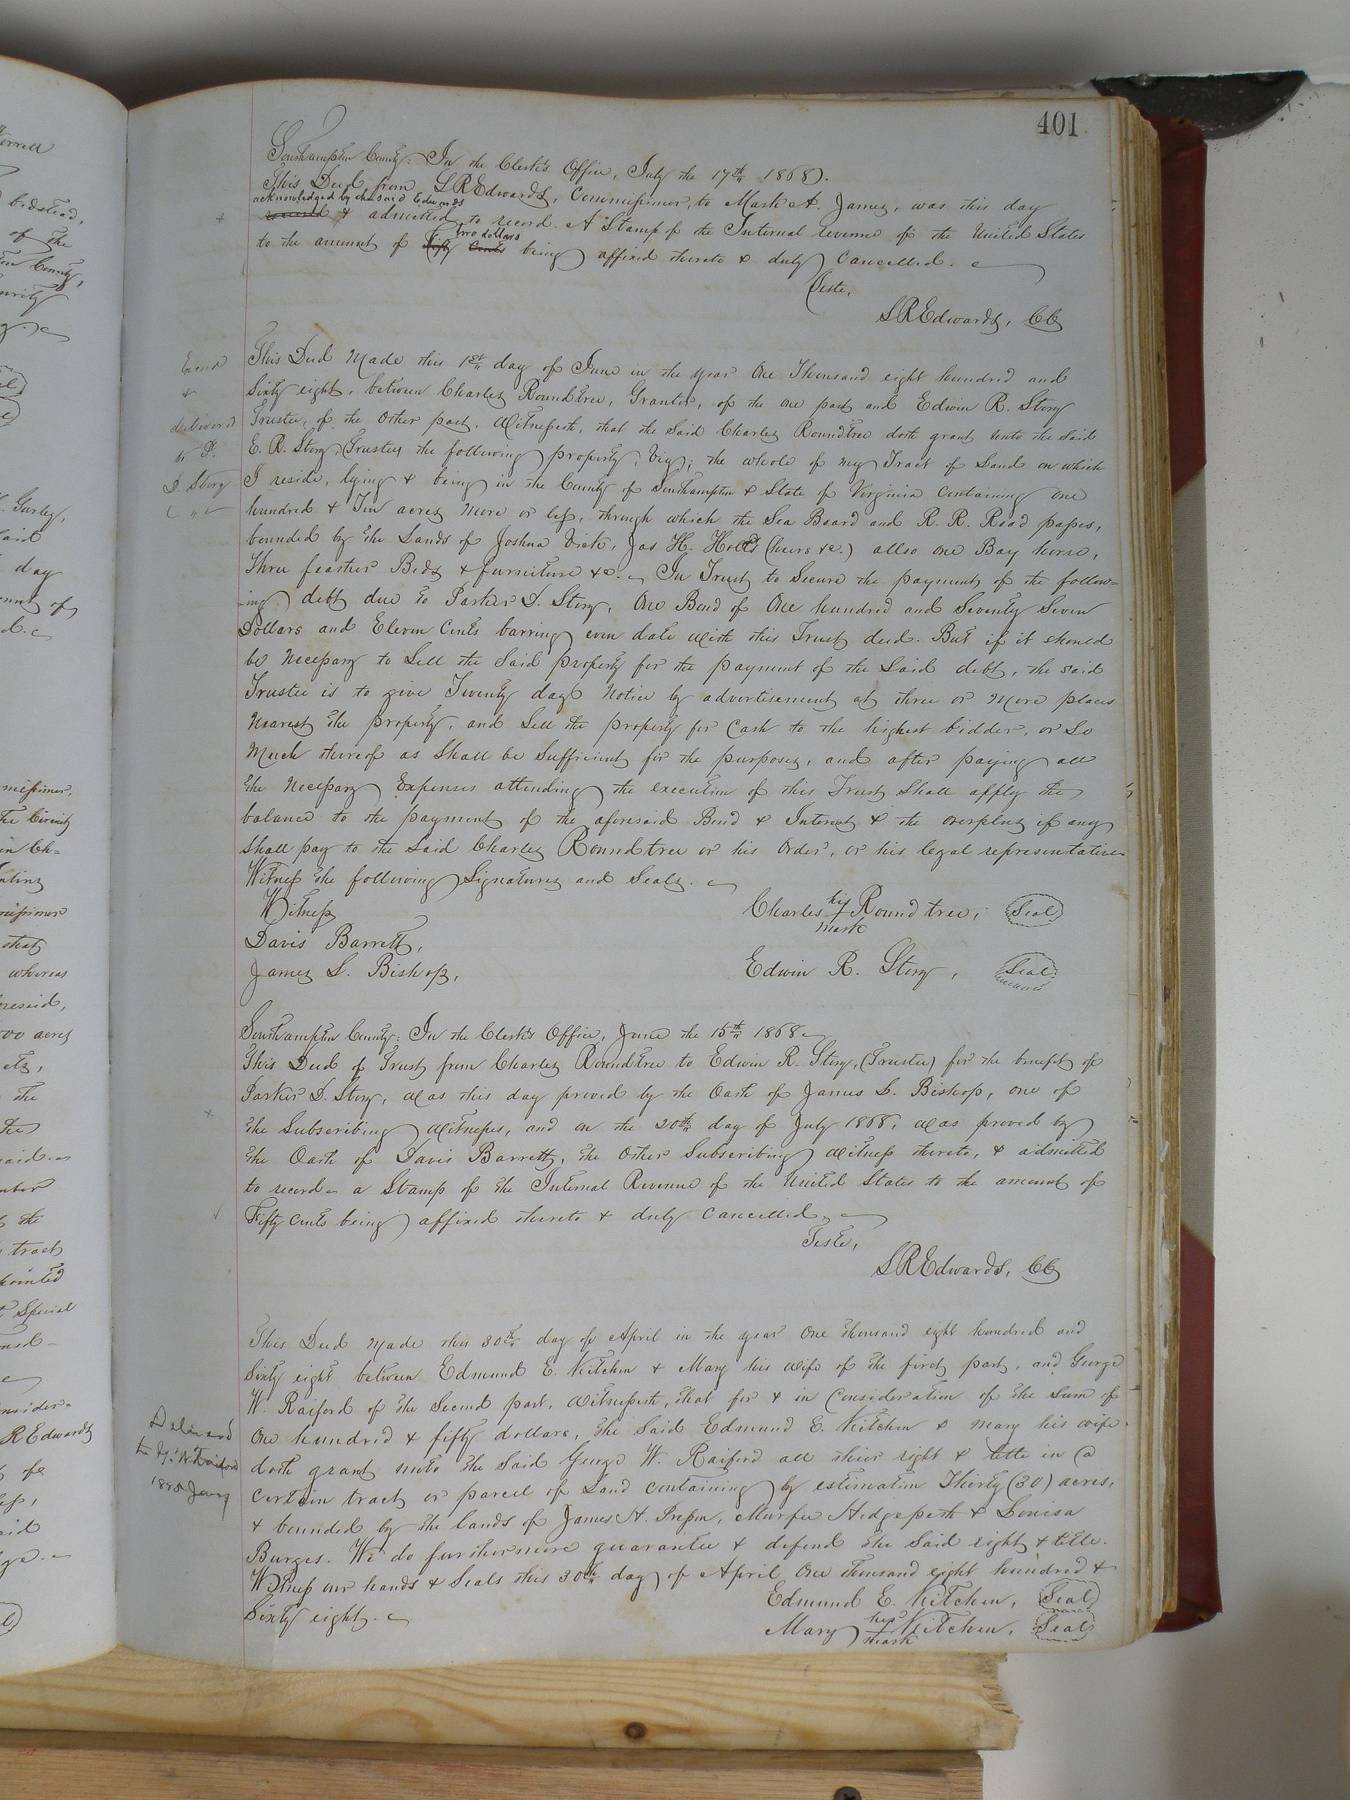 401
Southampton County: In the Clerk's Office, July the 17th 1868.
This Deed from L R Edwards, Commissioner, to Mark A. James, was this day
acknowledged by the said Edwards
& admitted to record. A Stamp of the Internal revenue of the United States
two dollars
to the amount of fifty cents being affixed thereto & duly Cancelled.
Teste,
L R Edwards, CC
This Deed Made this 1st day of June in the year One Thousand eight hundred and
Sixty eight, between Charles Roundtree, Grantor, of the one part and Edwin R. Story
Trustee, of the other part. Witnesseth, that the said Charles Roundtree doth grant unto the said
E. R. Story (Trustee) the following property, viz; the whole of my Tract of Land on which
I reside, lying & being in the County of Southampton & State of Virginia Containing one
hundred & Ten acres more or less, through which the Sea Board and R. R. Road passes,
bounded by the Lands of Joshua Vick, Jas H. Holt's (heirs &c.) allso one Bay horse,
Three feather Beds & furniture &c. In Trust to Secure the payment of the follow-
-ing debt due to Parker D. Story, One Bond of One hundred and Seventy Seven
Dollars and Eleven Cents barring even date with this Trust deed. But if it should
be Necessary to Sell the Said property for the payment of the Said debt, the said
Trustee is to give Twenty days Notice by advertisement at three or More places
Nearest the property, and Sell the property for Cash to the highest bidder, or So
Much thereof as Shall be Sufficient for the purposes, and after paying all
the Necessary Expenses attending the execution of this Trust Shall apply the
balance to the payment of the aforesaid Bond & Interest & the overplus if any
Shall pay to the Said Charles Roundtree or his Order, or his legal representatives
Witness the following Signatures and Seals.
Witness
Charles his + mark Roundtree, Seal
Davis Barrett,
James L. Bishop,
Edwin R. Story, Seal
delivered
to P.
D Story
Southampton County: In the Clerk's Office, June the 15th 1868
This Deed of Trust from Charles Roundtree to Edwin R. Story, (Trustee) for the benefit of
Parker D. Story, was this day proved by the Oath of James L. Bishop, one of
the Subscribing Witnesses, and on the 20th day of July 1868, was proved by
the Oath of Davis Barrett, the other Subscribing Witness thereto, & admitted
to record a Stamp of the Internal Revenue of the United States to the amount of
Fifty cents being affixed thereto & duly Cancelled,
Teste,
L R Edwards, CC
This Deed Made this 30th day of April in the year One thousand eight hundred and
Sixty eight between Edmund E. Kitchen & Mary his wife of the first part, and George
W. Raiford of the Second part, Witnesseth, that for & in Consideration of the Sum of
One hundred & fifty dollars, the Said Edmund E. Kitchen & Mary his wife
doth grant unto the Said George W. Raiford all their right & title in a
Certain tract or parcel of Land Containing by estimation Thirty (30) acres,
& bounded by the lands of James H. Murfee Hedgepeth & Louisa
Burges. We do furthermore guarantee & defend the Said right & title.
Witness our hands & Seals this 30th day of April One thousand eight hundred &
Sixty eight.
Edmund E. Kitchen, Seal
Mary her + mark Kitchen, Seal
Delivered
to G. W. Raiford